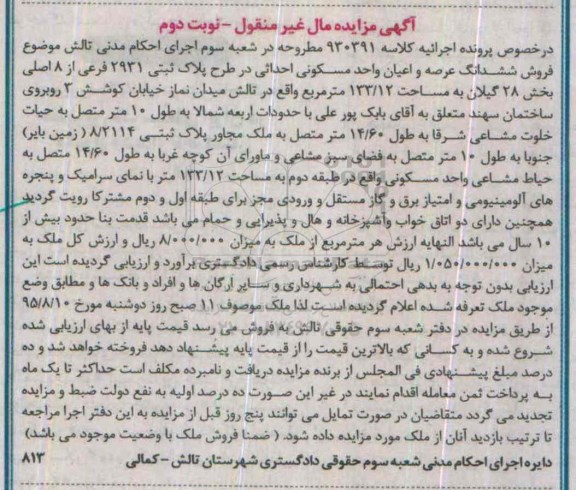 آگهی مزایده مال غیر منقول - نوبت دوم
درخصوص پرونده اجرائیه کلاسه ۹۳۰۳۹۱ مطروحه در شعبه سوم اجرای احکام مدنی تالش موضوع
فروش ششدانگ عرصه و اعیان واحد مسکونی احداثی در طرح پلاک ثبتی ۲۹۳۱ فرعی از ۸ اصلی
بخش ۲۸ گیلان به مساحت ۱۳۳/۱۲ مترمربع واقع در تالش میدان نماز خیابان کوشش ۳ روبروی
ساختمان سهند متعلق به آقای بابک پور علی با حدودات اربعه شمالا به طول ۱۰ متر متصل به حیات
خلوت مشاعی شرقا به طول ۱۴/۶۰ متر متصل به ملک مجاور پلاک ثبتی ۸/۲۱۱۴ ( زمین بایر)
جنوبا به طول ۱۰ متر متصل به فضای سبز مشاعی و ماورای آن کوچه غربا به طول ۱۴/۶۰ متصل به
حیاط مشاعی واحد مسکونی واقع در طبقه دوم به مساحت ۱۳۳/۱۲ متر با نمای سرامیک و پنجره
های آلومینیومی و امتیاز برق و گاز مستقل و ورودی مجز برای طبقه اول و دوم مشترکا رویت گردید
همچنین دارای دو اتاق خواب وآشپزخانه و هال و پذیرایی و حمام می باشد قدمت بنا حدود بیش از
۱۰ سال می باشد النهایه ارزش هر مترمربع از ملک به میزان ۸/۰۰۰/۰۰۰ ریال و ارزش کل ملک به
میزان ۱/۰۵۰/۰۰۰/۰۰۰ ریال توسط کارشناس رسمی دادگستری برآورد و ارزیابی گردیده است این
ارزیابی بدون توجه به بدهی احتمالی به شهرداری و سایر ارگان ها و افراد و بانک ها و مطابق وضع
موجود ملک تعرفه شده اعلام گردیده است لذا ملک موصوف ۱۱ صبح روز دوشنبه مورخ ۹۵/۸/۱۰
از طریق مزایده در دفتر شعبه سوم حقوقی تالش به فروش می رسد قیمت پایه از بهای ارزیابی شده
شروع شده و به کسانی که بالاترین قیمت را از قیمت پایه پیشنهاد دهد فروخته خواهد شد و ده
درصد مبلغ پیشنهادی فی المجلس از برنده مزایده دریافت و نامبرده مکلف است حداکثر تا یک ماه
به پرداخت ثمن معامله اقدام نمایند در غیر این صورت ده درصد اولیه به نفع دولت ضبط و مزایده
تجدید می گردد متقاضیان در صورت تمایل می توانند پنج روز قبل از مزایده به این دفتر اجرا مراجعه
تا ترتیب بازدید آنان از ملک مورد مزایده داده شود. ( ضمنا فروش ملک با وضعیت موجود می باشد)
دایره اجرای احکام مدنی شعبه سوم حقوقی دادگستری شهرستان تالش - کمالی ۸۱۳